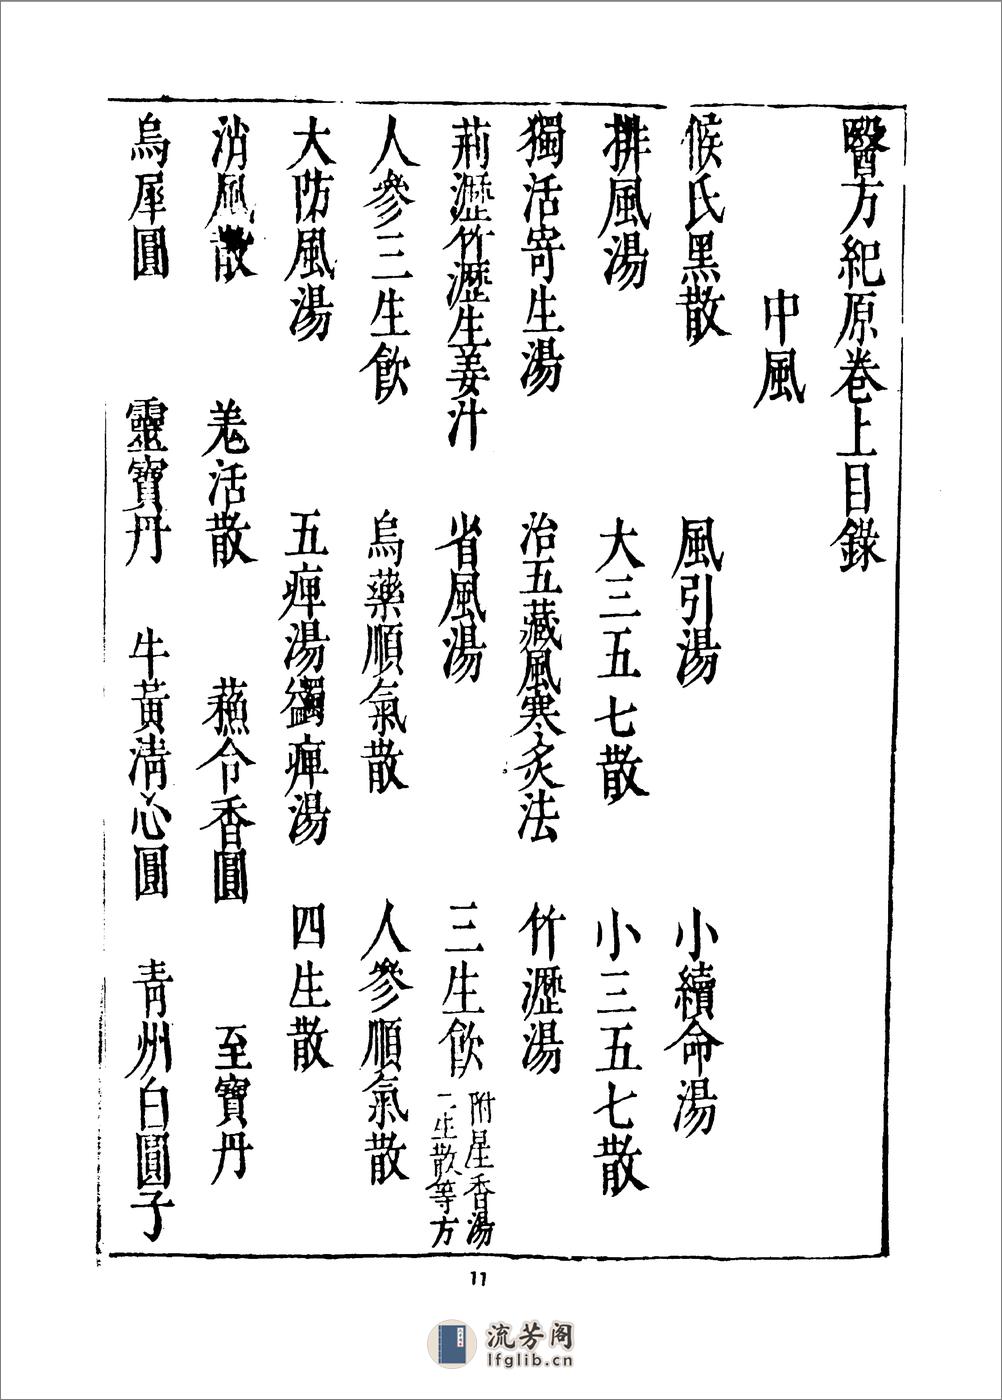 醫方紀原卷上目錄
中風
候氏黑散 風引湯 小續命湯
排風湯 大三五七散 小三五七散
獨活寄生湯 治五藏風寒炙法 竹瀝湯
荊瀝竹瀝生姜汁 省風湯 三生飲 附星香湯二生散等方
人參三生飲 烏藥順氣散 人參順氣散
大防風湯 五痺湯蠲痺湯 四生散
消風散 羌活散 蘓合香圓 至寶丹
烏犀圓 靈寶丹 牛黃清心圓 青州白圓子
11
流芳阁
lfglib.cn